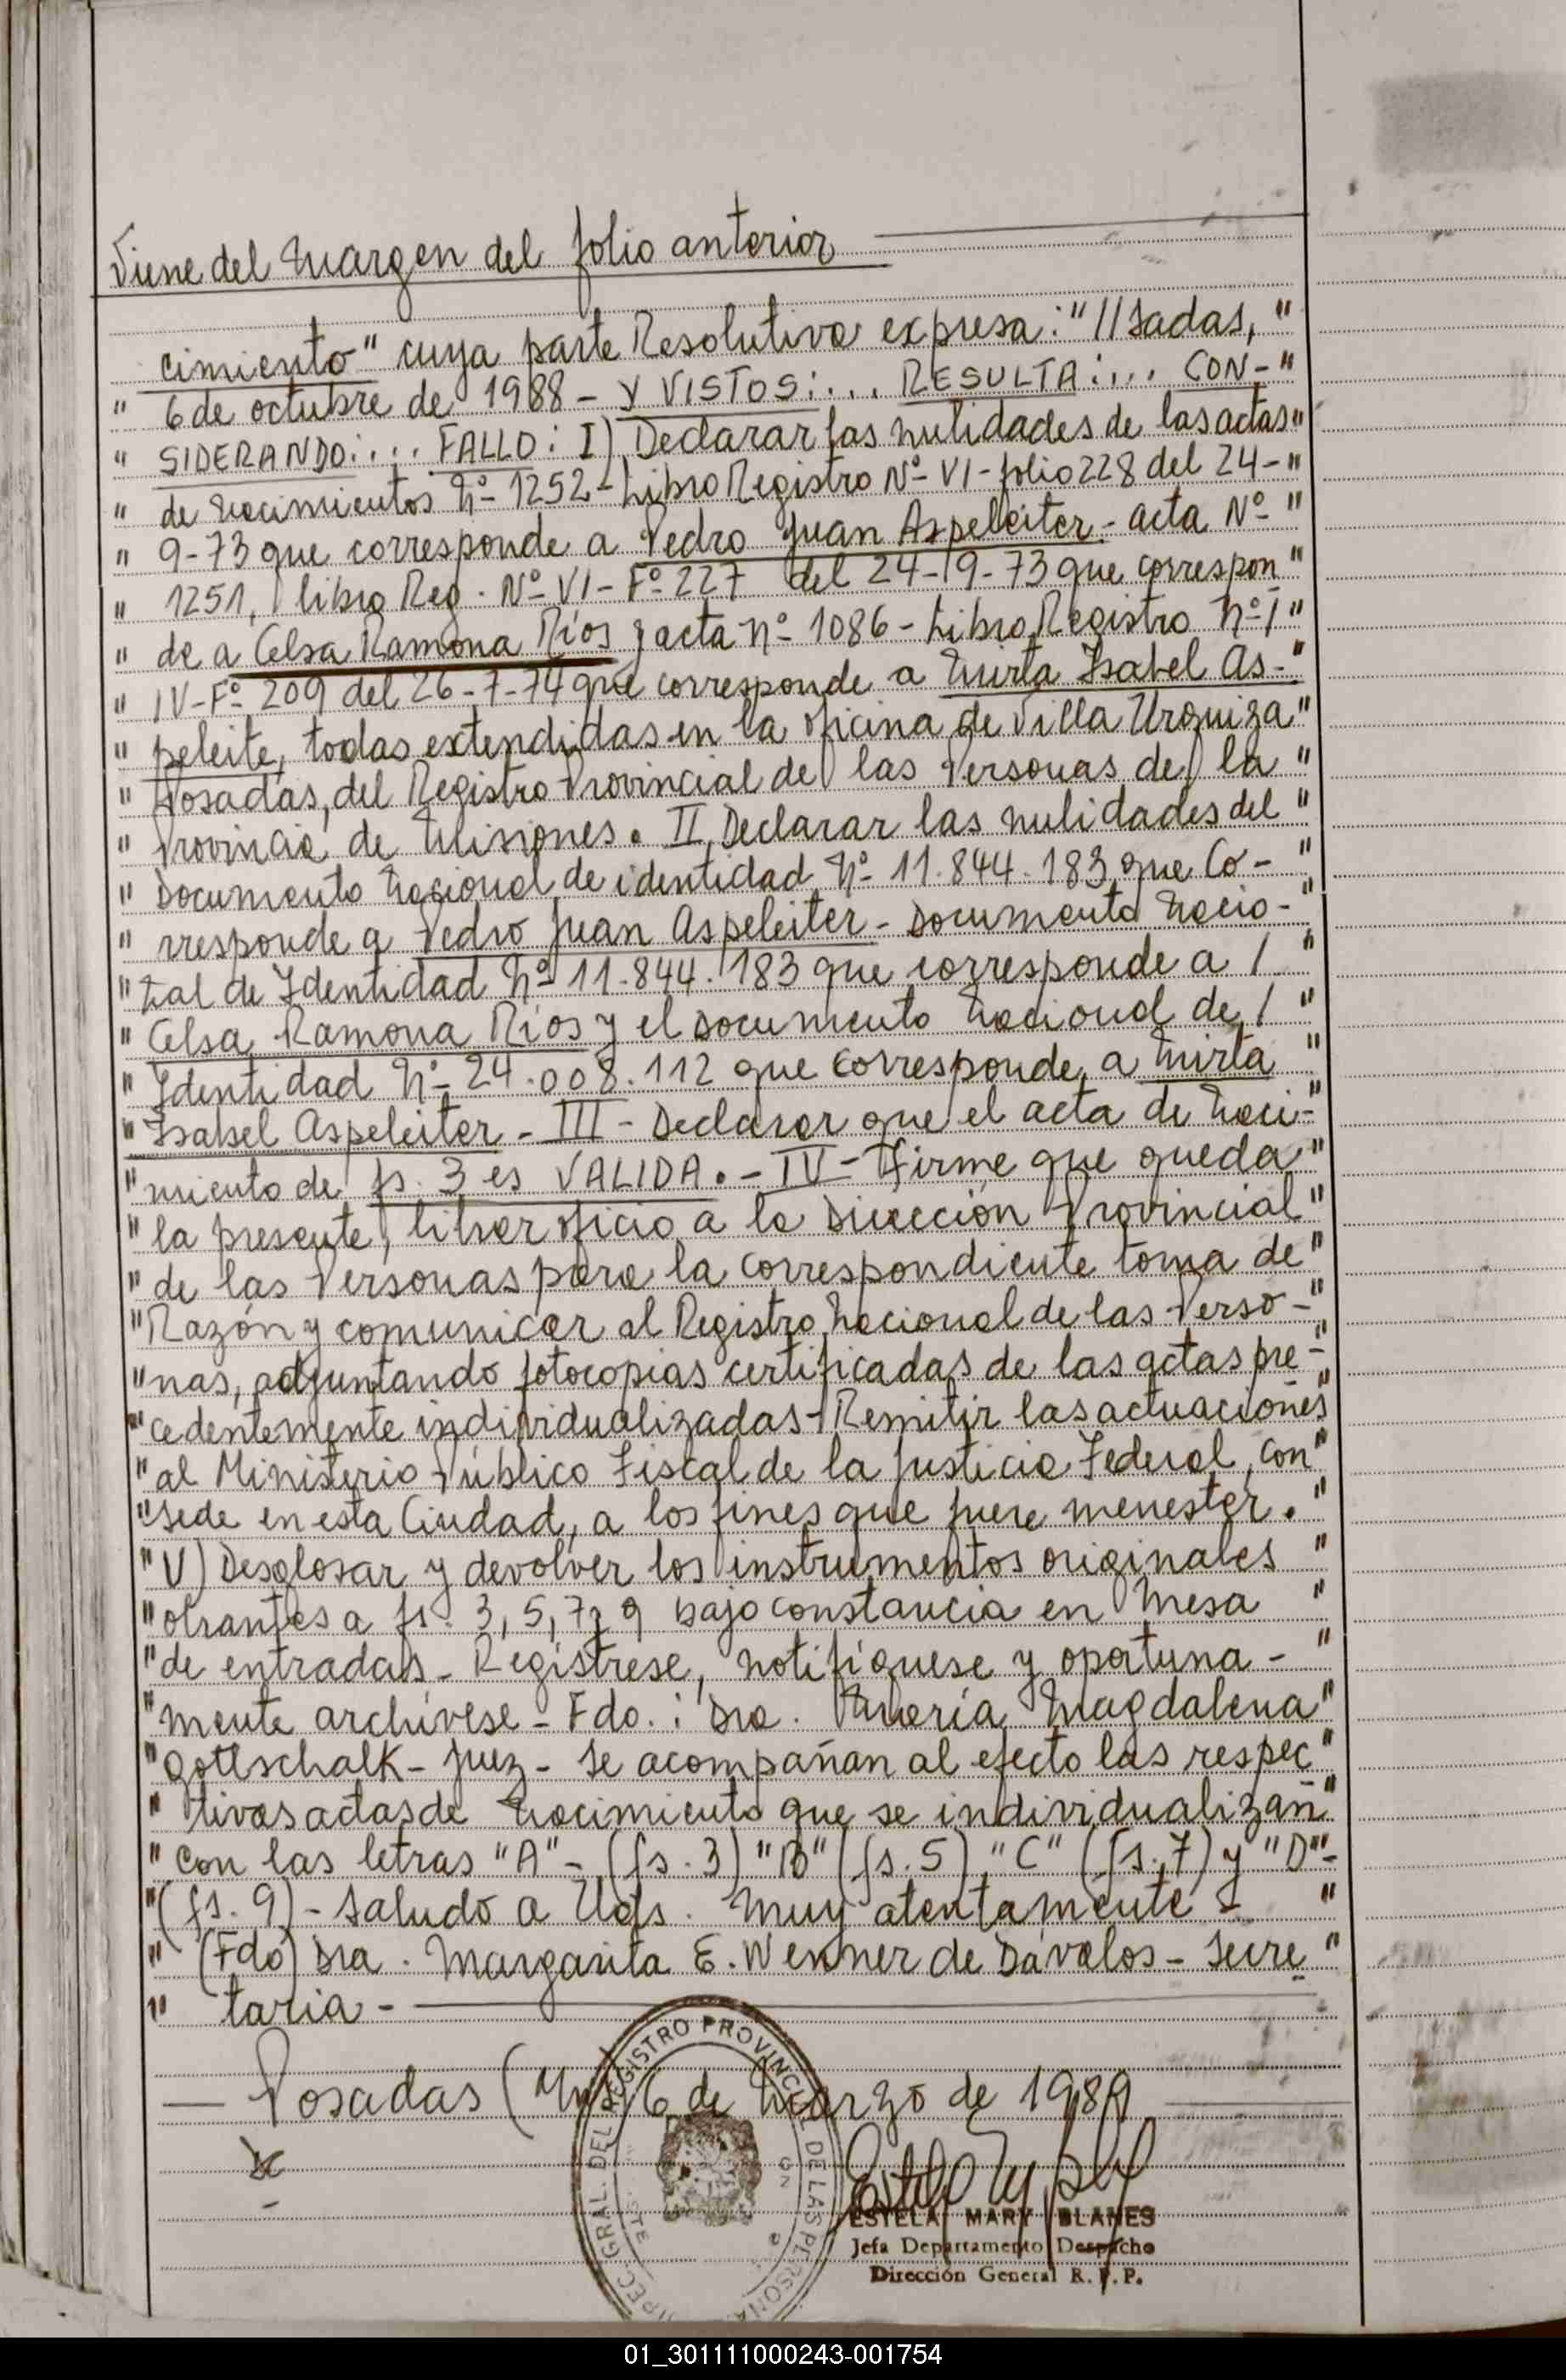 Viene del Margen del folio anterior
cimiento" cuya parte Resolutiva expresa: "//sadas, "
" 6 de octubre de 1988 - Y VISTOS:... RESULTA:... CON- "
" SIDERANDO:... FALLO: I) Declarar las nulidades de las actas "
" de Nacimientos Nº 1252 - Libro Registro Nº VI - folio 228 del 24- "
" 9-73 que corresponde a Pedro Juan Aspeleiter - acta Nº "
" 1251, libro Reg. Nº VI - Fº 227 del 24-9-73 que correspon "
" de a Celsa Ramona Ríos y acta Nº 1086 - Libro Registro Nº/ "
" IV-Fº 209 del 26-7-74 que corresponde a Mirta Isabel As- "
" peleite, todas extendidas en la oficina de Villa Urquiza "
" Posadas, del Registro Provincial de las Personas de la "
" Provincia de Misiones. II Declarar las nulidades del "
" Documento Nacional de identidad Nº 11.844.183 que Co- "
" rresponde a Pedro Juan Aspeleiter - Documento Nacio- "
" nal de Identidad Nº 11.844.183 que corresponde a / "
" Celsa Ramona Ríos y el Documento Nacional de / "
" Identidad Nº 24.008.112 que corresponde a Mirta "
" Isabel Aspeleiter - III - Declarar que el acta de Naci- "
" miento de fs. 3 es VALIDA. - IV - Firme que queda "
" la presente, librar oficio a la Dirección Provincial "
" de las Personas para la correspondiente toma de "
" Razón y comunicar al Registro Nacional de las Perso- "
" nas, adjuntando fotocopias certificadas de las actas pre- "
" cedentemente individualizadas - Remitir las actuaciones "
" al Ministerio Público Fiscal de la Justicia Federal, con "
" sede en esta Ciudad, a los fines que fuere menester. "
" V) Desglosar y devolver los instrumentos originales "
" obrantes a fs. 3, 5, 7 y 9 bajo constancia en Mesa "
" de entradas - Regístrese, notifíquese y oportuna - "
" mente archívese - Fdo.: Dra. María Magdalena "
" Gottschalk - Juez - Se acompañan al efecto las respec "
" tivas actas de Nacimiento que se individualizan "
" con las letras "A" - (fs. 3) "B" (fs. 5), "C" (fs. 7) y "D" -
" (fs. 9) - Saludo a Uds. muy atentamente - "
" (Fdo) Dra. Margarita E. Wenner de Dávalos - Secre "
" taria -
— Posadas (Mnes) 6 de Marzo de 1989
ESTELA MARY BLANES
Jefa Departamento Despacho
Dirección General R. P. P.
GRAL. DEL REGISTRO PROVINCIAL DE LAS PERSONAS
01_301111000243-001754